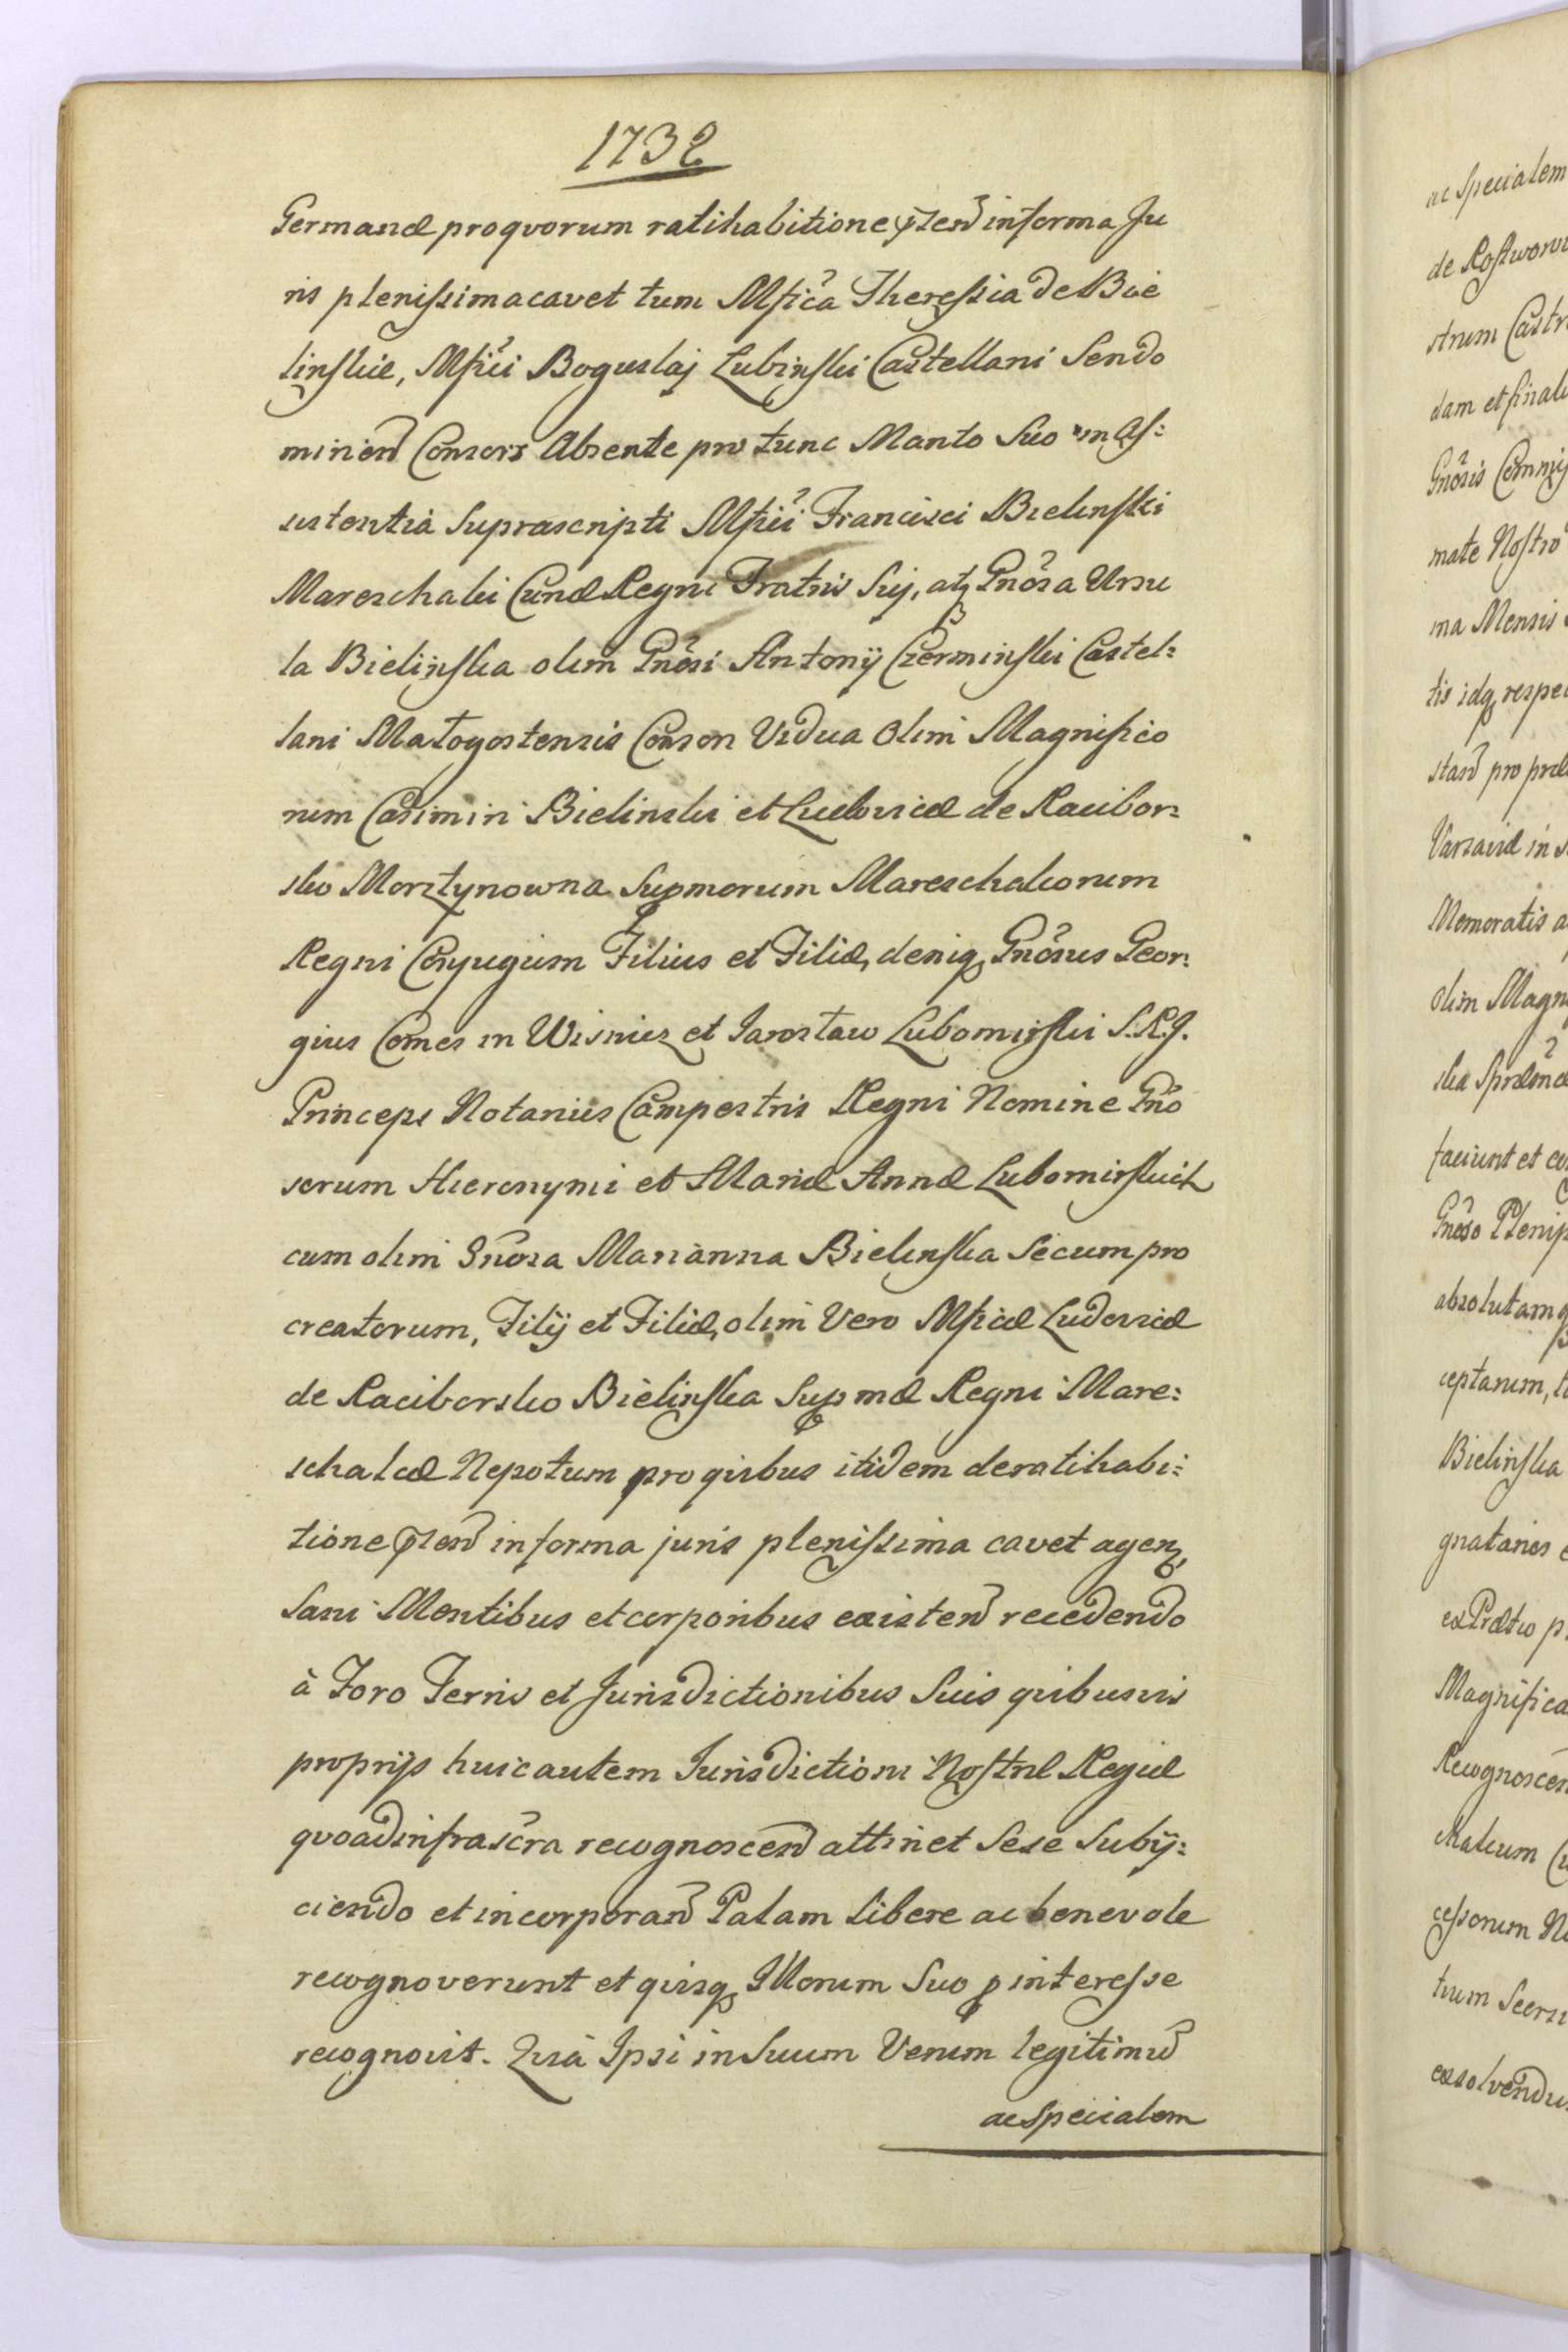 1732
Germanæ, pro qvorum ratihabitione pszen̄ in forma Ju
ris plenissima cavet tum Mfica Theressia de Bie
linskie, Mfici Boguslaj Lubinski Castellani Sendo
mirien̄ Consors Absente pro tunc Marito Suo in As:
sistentia Suprascripti Mfici Francisci Bielinski
Mareschalci Curiæ Regni Fratris Sui, atq Gnosa Ursu
la Bielinska olim Gnosi Antonij Czerminski Castel:
lani Małogostensis Conson Vidua Olim Magnifico
rum Casimiri Bielinski et Ludovicæ de Racibor:
sko Morsztynowna Supmorum Mareschalcorum
Regni Conjugum Filius et Filiæ, deniq Gnosus Geor:
gius Comes in Wisnicz et Jarosław Lubomirski S.R.J.
Princeps Notarius Campestris Regni Nomine Gno
sorum Hieronymi et Mariæ Annæ Lubomirskich
cum olim Gnosa Marianna Bielinska Secum pro
creatorum, Filij et Filiæ, olim Vero Mficæ Ludovicæ
de Raciborsko Bielinska Supmæ Regni Mare:
schalcæ Nepotum pro qvibus itidem de ratihabi:
tione pszen̄ in forma juris plenissima cavet agen,
Sani Mentibus et corporibus existen̄ recedendo
à Foro Terris et Jurisdictionibus Suis qvibusvis
proprijs huic autem Jurisdictioni Nostræ Regiæ
qvo ad infrascra recognoscen̄ attinet Sese Subij:
ciendo et incorporan̄ Palam libere ac benevole
recognoverunt et qvisq Illorum Suo p interesse
recognovit. Qvia Ipsi in Suum Verum legitimū
ac specialem
ac Specialem
de Rostworow
strum Castr
dam et final
Gnosis Commis
mate Nostro
ma Mensis
tis idq respec
stan̄ pro præ
Varsaviæ in
Memoratis a
olim Magn
ska Spræmæ
faciunt et co
Gnoso Plenip
absolutam q
ceptarum, t
Bielinska
gnatarios
ex Prætio p
Magnifica
Recognoscen
chalcum Cu
cessorum N
tium Seers
exsolvendu